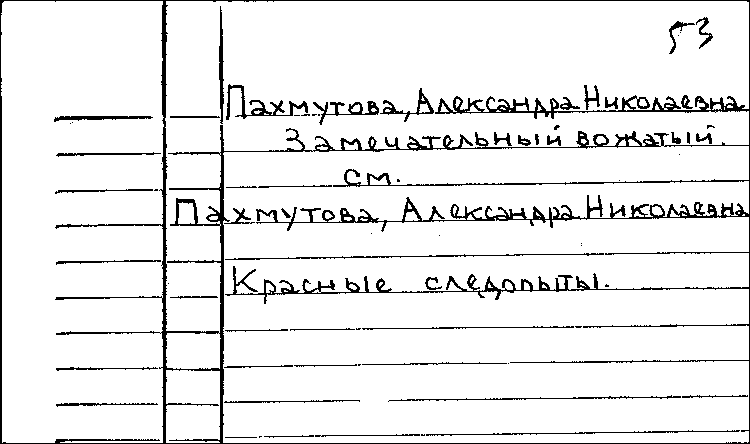 53
Пахмутова, Александра Николаевна
Замечательный вожатый.
см.
Пахмутова, Александра Николаевна
Красные следопыты.